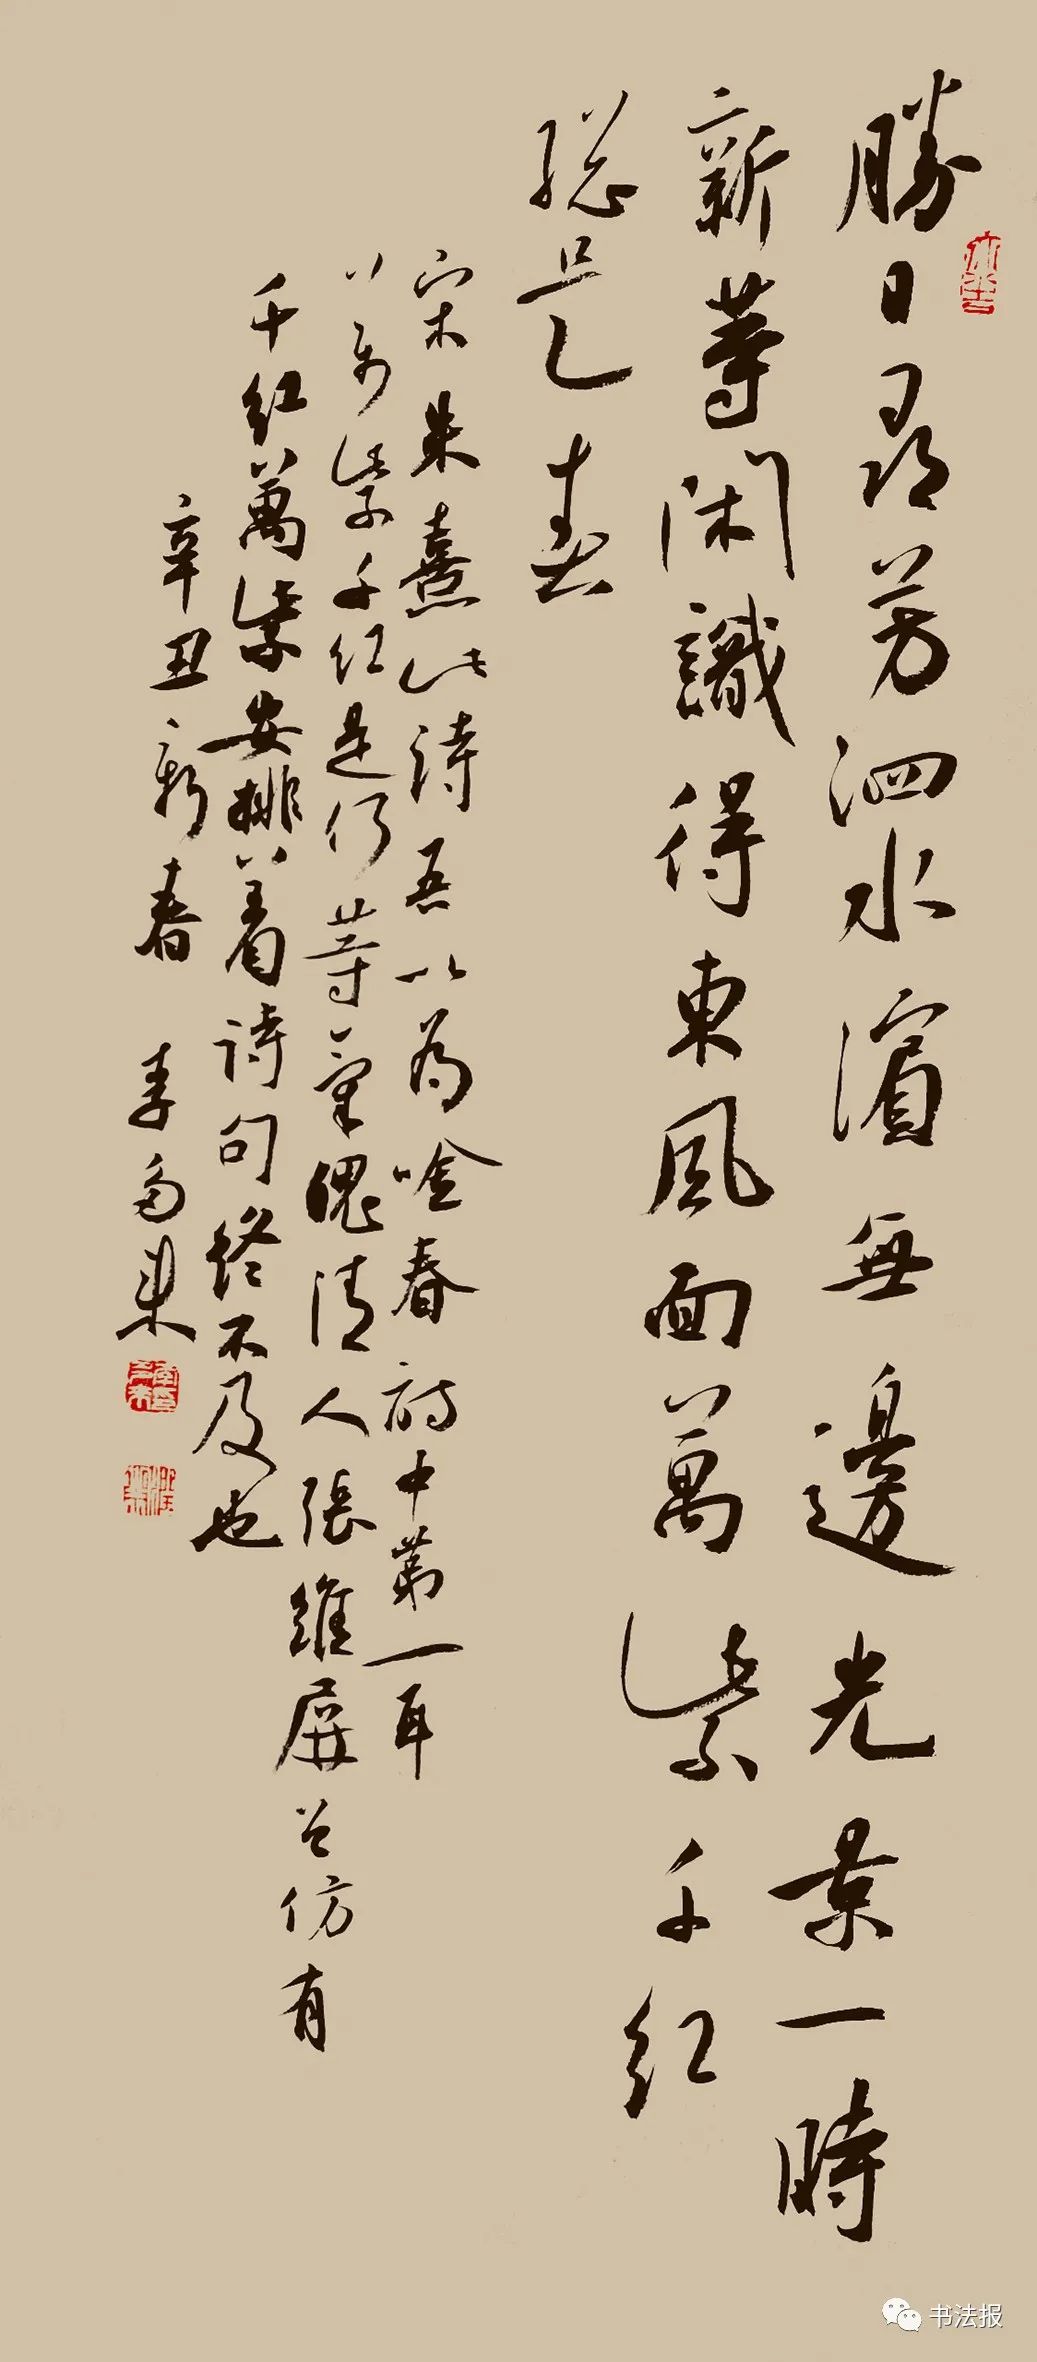 勝日尋芳泗水濱無邊光景一時
新等閑識得東風面萬紫千紅
総是春
宋朱熹此詩吾以為唫春詩中第一耳
万紫千紅是何等氣魄清人張維屏公仿有
千紅萬紫安排著詩句終不及也
辛丑新春 李多來
书法报